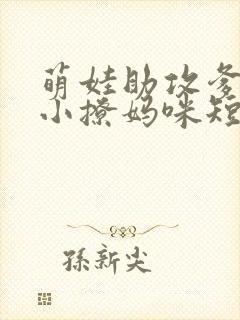 萌娃助攻爹
小撩妈咪短
孫新尖